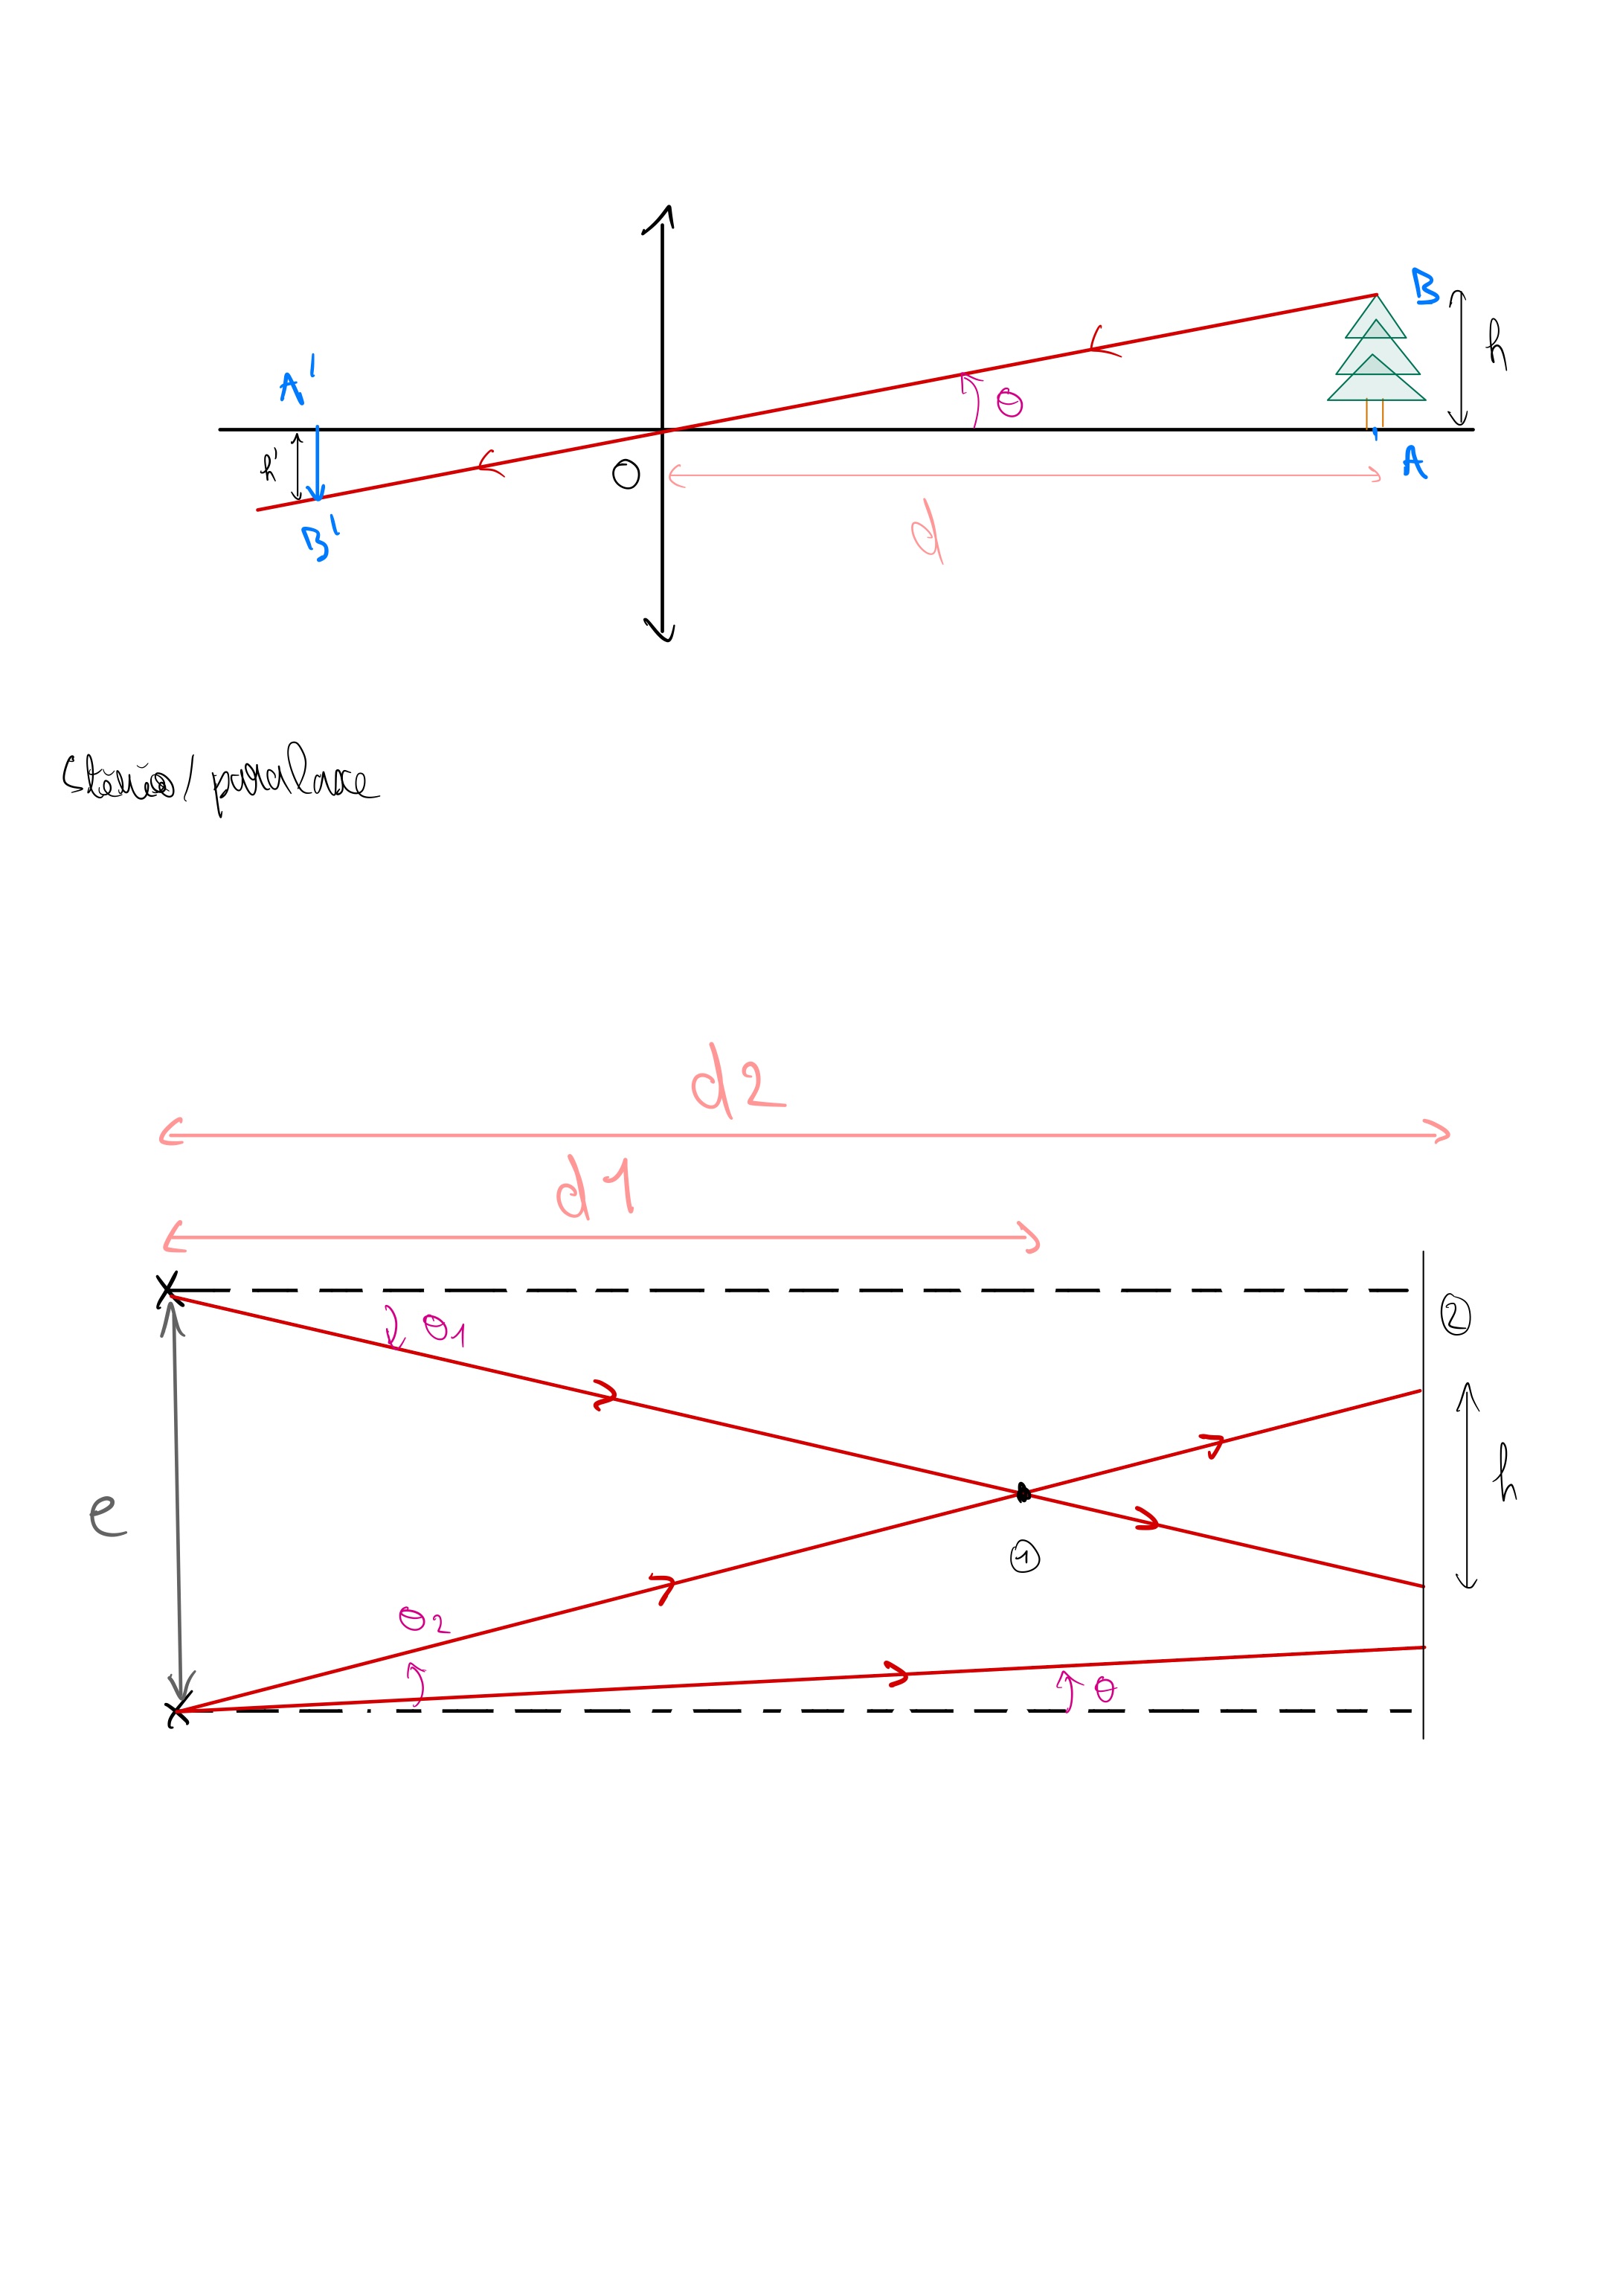 B
h
A'
θ
h'
O
A
B'
d
stéréo/ parallaxe
d2
d1
θ1
②
h
e
①
θ2
θ